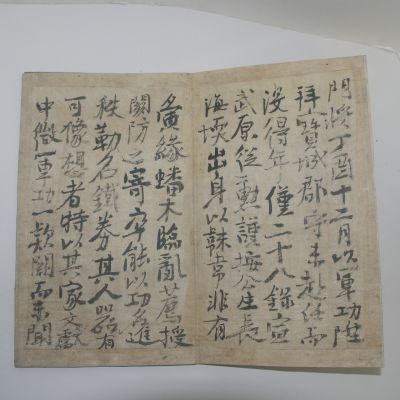 門將丁酉十二月以軍功陞
拜寶城郡守未赴任而
沒得年僅二十八錄宣
武原從勳謹按公生長
海堧出身以韎韋非有
夤緣蟠木臨亂薦授
關防之寄卒能以功自進
秩勒名鐵券其人器有
可像想者特以其家文獻
中微軍功一款闕而未聞